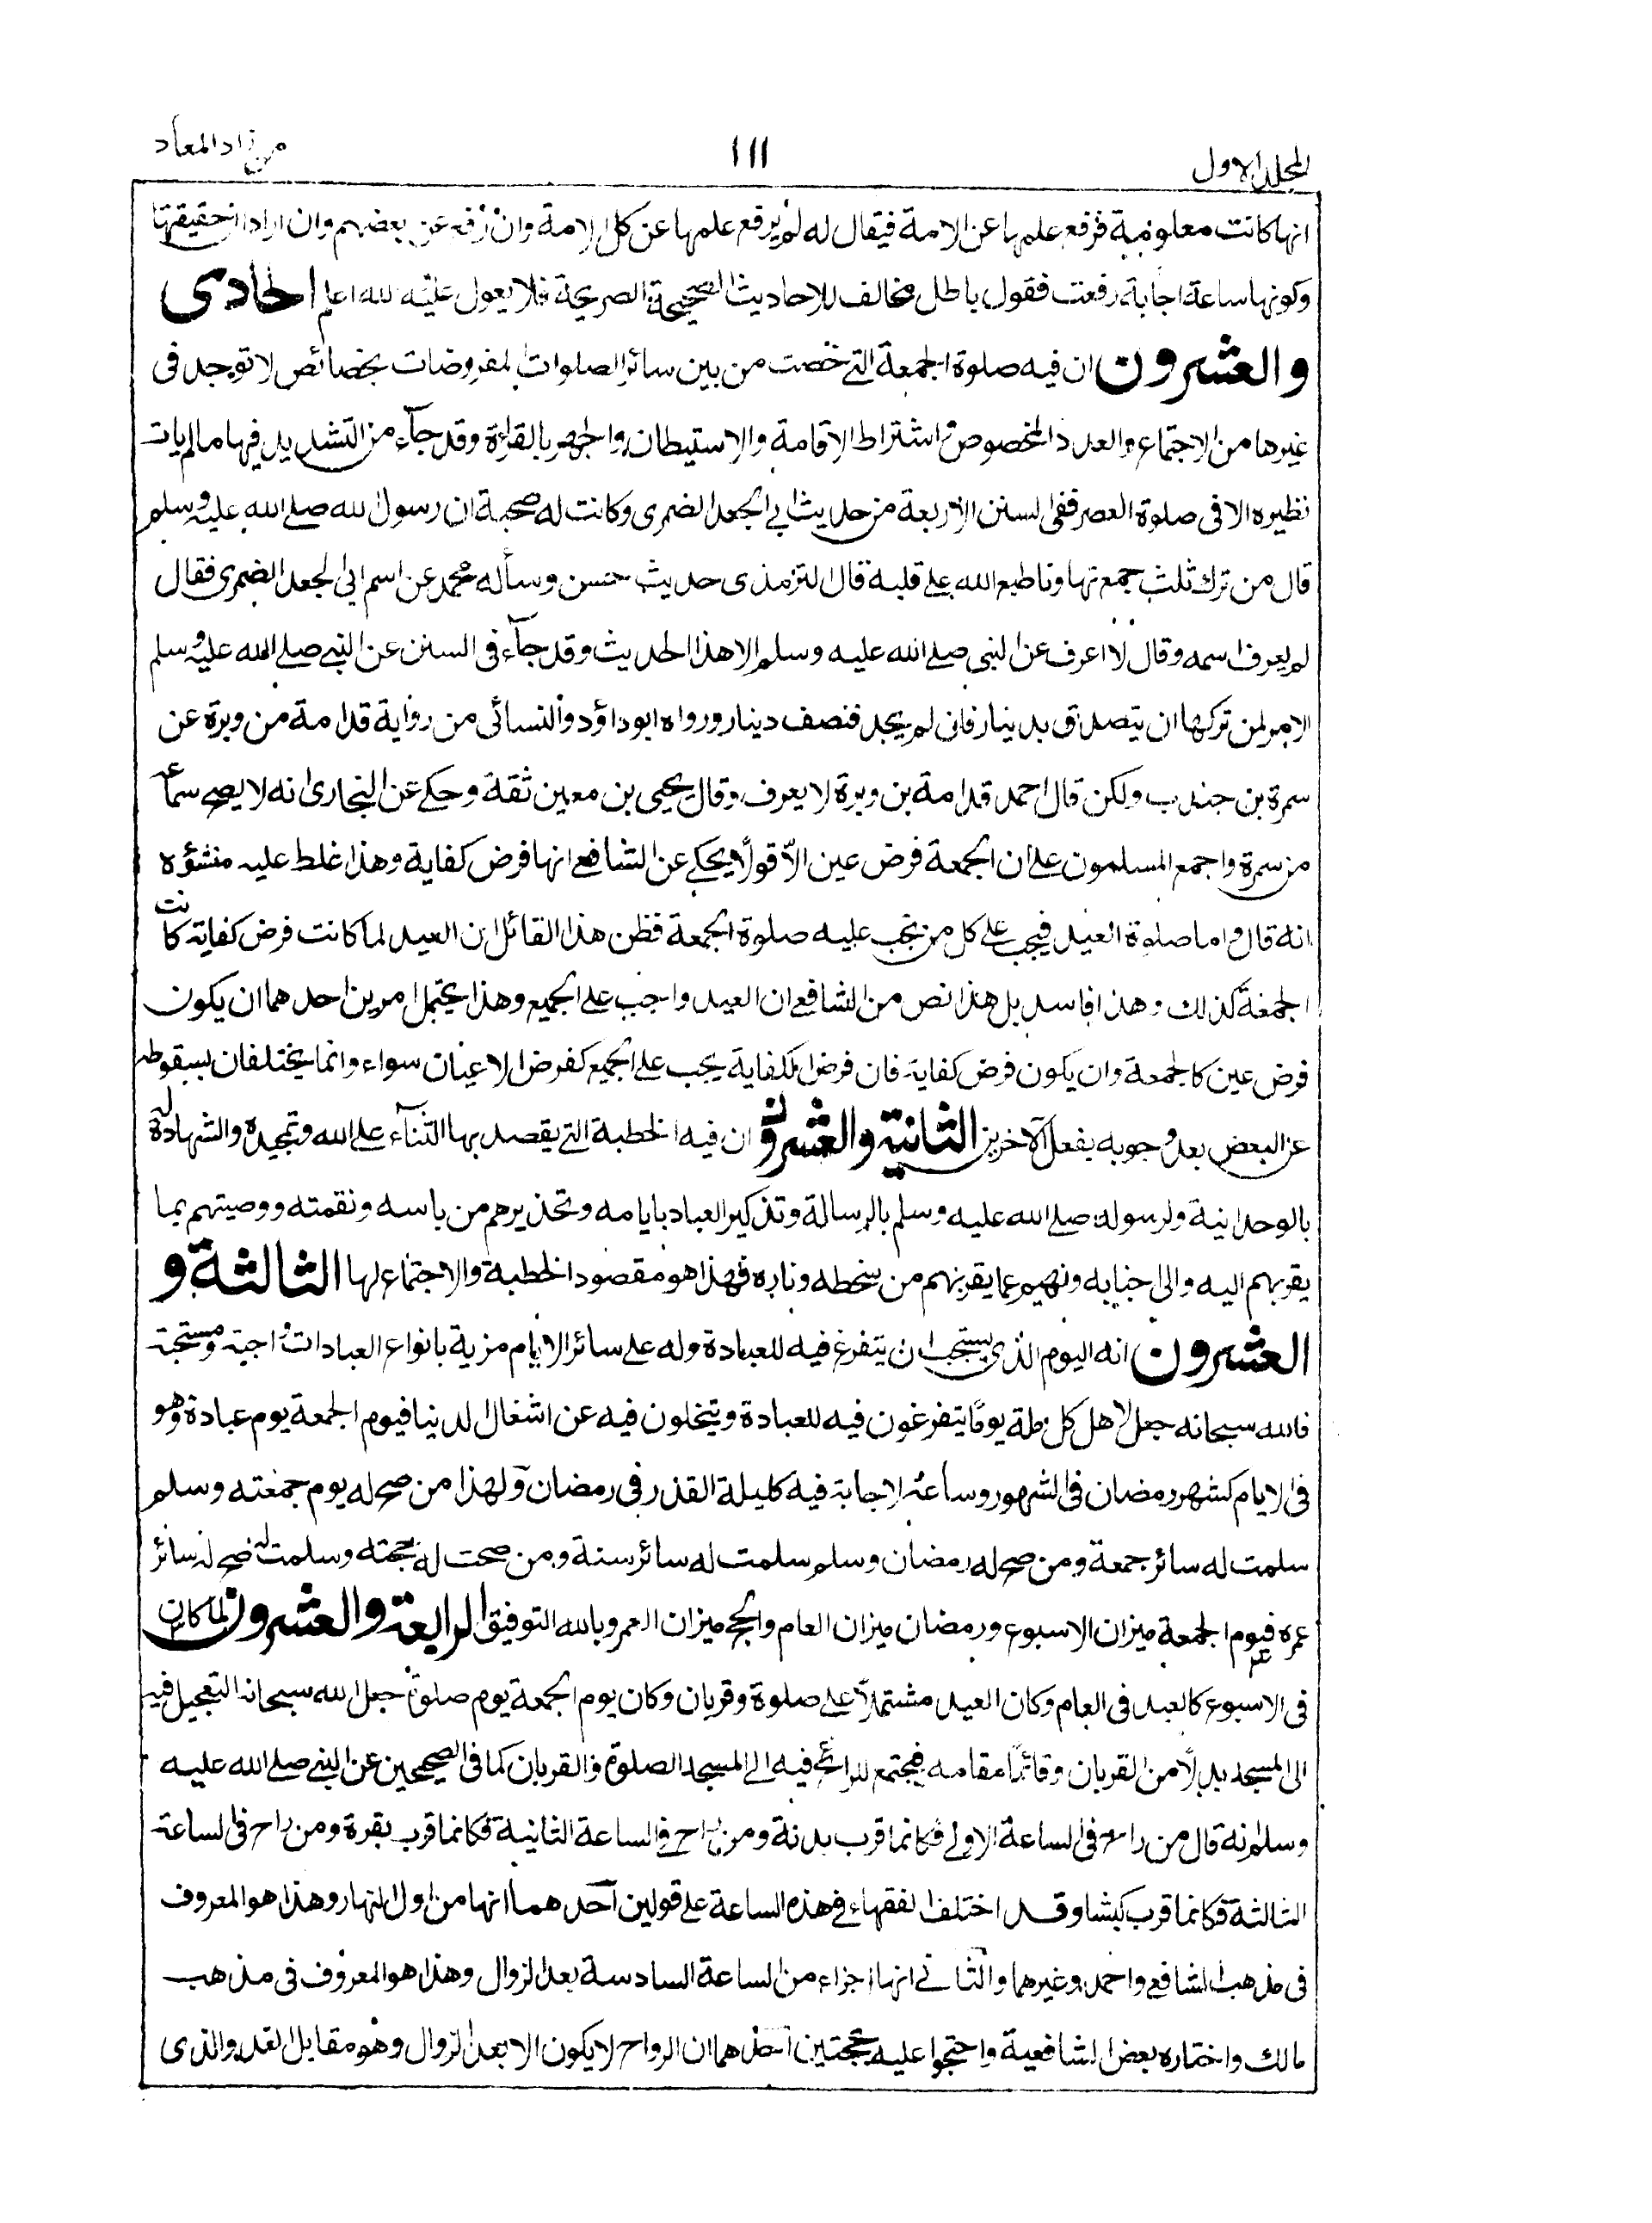 المجلد الاول
١١١
من زاد المعاد
انها كانت معلومة فرفع علمها عن الامة فيقال له لم يرفع علمها عن كل الامة وان رفع عن بعضهم وان اراد ان حقيقتها
وكونها ساعة اجابة رفعت فقول باطل مخالف للاحاديث الصحيحة الصريحة فلا يعول عليه والله اعلم الحادى
والعشرون ان فيه صلوة الجمعة التى خصت من بين سائر الصلوات المفروضات بخصائص لا توجد فى
غيرها من الاجتماع والعدد المخصوص واشتراط الاقامة والاستيطان والجهر بالقراءة وقد جاء من التشديد فيها ما لم يات
نظيره الا فى صلوة العصر ففى السنن الاربعة من حديث ابى الجعد الضمرى وكانت له صحبة ان رسول الله صلے الله عليه وسلم
قال من ترك ثلث جمع تهاونا طبع الله على قلبه قال الترمذى حديث حسن وسألت محمد عن اسم ابى الجعد الضمرى فقال
لم يعرف اسمه وقال لا اعرف عن النبى صلے الله عليه وسلم الا هذا الحديث وقد جاء فى السنن عن النبى صلے الله عليه وسلم
الامر لمن تركها ان يتصدق بدينار فان لم يجد فنصف دينار ورواه ابو داؤد والنسائى من رواية قدامة من وبرة عن
سمرة بن جندب ولكن قال احمد قدامة بن وبرة لا يعرف وقال يحيى بن معين ثقة وحكے عن البخارى انه لا يصح سماعه
من سمرة واجمع المسلمون على ان الجمعة فرض عين الا قولا يحكے عن الشافعے انها فرض كفاية وهذا غلط عليه منشؤه
انه قال واما صلوة العيد فيجب على كل من تجب عليه صلوة الجمعة فظن هذا القائل ان العيد لما كانت فرض كفاية كانت
الجمعة كذلك وهذا فاسد بل هذا نص من الشافعے ان العيد واجب على الجميع وهذا يحتمل امرين احدهما ان يكون
فرض عين كالجمعة وان يكون فرض كفاية فان فرض الكفاية يجب على الجميع كفرض الاعيان سواء وانما يختلفان بسقوطه
عن البعض بعد وجوبه بفعل الآخرين الثانية والعشرون ان فيه الخطبة التى يقصد بها الثناء على الله وتمجيده والشهادة له
بالوحدانية ولرسوله صلے الله عليه وسلم بالرسالة وتذكير العباد بايامه وتحذيرهم من باسه ونقمته ووصيتهم بما
يقربهم اليه والى جنابه ونهيهم عما يقربهم من سخطه وناره فهذا هو مقصود الخطبة والاجتماع لها الثالثة و
العشرون انه اليوم الذى يستحب ان يتفرغ فيه للعبادة وله على سائر الايام مزية بانواع العبادات واجبة ومستحبة
فالله سبحانه جعل لاهل كل ملة يوما يتفرغون فيه للعبادة ويتخلون فيه عن اشغال الدنيا فيوم الجمعة يوم عبادة وهو
فى الايام كشهر رمضان فى الشهور وساعة الاجابة فيه كليلة القدر فى رمضان ولهذا من صح له يوم جمعته وسلم
سلمت له سائر جمعة ومن صح له رمضان وسلم سلمت له سائر سنة ومن صحت له حجته وسلمت له صح له سائر
عمره فيوم الجمعة ميزان الاسبوع ورمضان ميزان العام والحج ميزان العمر وبالله التوفيق الرابعة والعشرون لما كان
فى الاسبوع كالعيد فى العام وكان العيد مشتملا على صلوة وقربان وكان يوم الجمعة يوم صلوة جعل الله سبحانه التعجيل فيه
الى المسجد بدلا من القربان وقائما مقامه فيجتمع للرائح فيه الى المسجد الصلوة والقربان كما فى الصحيحين عن النبى صلے الله عليه
وسلم انه قال من راح فى الساعة الاولى فكانما قرب بدنة ومن راح فى الساعة الثانية فكانما قرب بقرة ومن راح فى الساعة
الثالثة فكانما قرب كبشا وقد اختلف الفقهاء فى هذه الساعة على قولين احدهما انها من اول النهار وهذا هو المعروف
فى مذهب الشافعے واحمد وغيرهما والثانے انها اجزاء من الساعة السادسة بعد الزوال وهذا هو المعروف فى مذهب
مالك واختاره بعض الشافعية واحتجوا عليه بحجتين احدهما ان الرواح لا يكون الا بعد الزوال وهو مقابل الغدو الذى